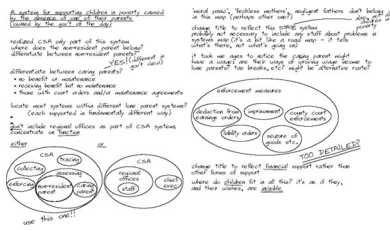 A system for supporting children in poverty caused
by the absence of one of their parents
(caused by the gov't of the day)
realized CSA only part of this system
where does the non-resident parent belong?
differentiate between non-resident parents?
YES! (different in gov't view)
differentiate between caring parents?
• no benefit or maintenance
• receiving benefit but no maintenance
• those with court orders and/or maintenance agreements
locate most systems within different lone parent systems?
(each supported in fundamentally different way)
don't include regional offices as part of CSA systems
concentrate on function
either
or
CSA
tracing
collecting
assessing
enforcing
non-resident
parent
caring
parent
use this one!!
CSA
regional
offices
staff
chief
exec
'moral panic', 'feckless mothers', negligent fathers don't belong
in this map (perhaps other one?)
does not
change title to reflect the STATE system
probably not necessary to include any stuff about problems in
systems map (it's a bit like a road map – it tells
what's there, not what's going on)
it took me ages to notice the caring parent might
have a wage! are their ways of giving wage income to
lone parents? tax breaks, etc? might be alternative route?
enforcement measures
deduction from
earnings orders
imprisonment
county court
enforcements
liability orders
seizure of
goods etc.
TOO DETAILED?
change title to reflect financial support rather than
other forms of support
where do children fit in all this? it's as if they,
and their wishes, are invisible